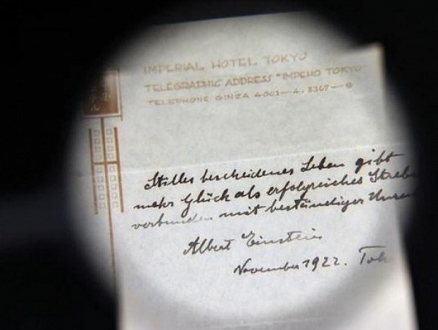 IMPERIAL HOTEL TOKYO
TELEGRAPHIC ADDRESS "IMPEHO TOKYO"
TELEPHONE GINZA
Stilles bescheidenes Leben gibt
mehr Glück als erfolgreiches Streben
verbunden mit beständiger
Albert Einstein
November 1922.